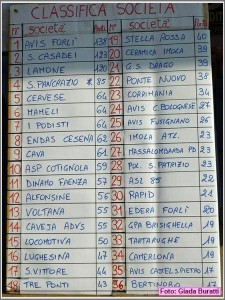 CLASSIFICA SOCIETA'
N° società Punti N° società Punti
1 AVIS FORLI' 138 19 STELLA ROSSA 40
2 S. CASADEI 123 20 CERAMICA IMOLA 40
3 LAMONE 120 21 G.S. DRAGO 39
4 S. PANCRAZIO 85 22 PONTE NUOVO 38
5 CERVESE 64 23 CORRIMANIA
6 MAMELI 64 24 AVIS C. BOLOGNESE 27
7 I PODISTI 64 25 AVIS FUSIGNANO 26
8 ENDAS CESENA 62 26 IMOLA ATL. 23
9 CAVA 61 27 MASSALOMBARDA PD 23
10 ASP COTIGNOLA 59 28 POL. S. PATRIZIO 23
11 DINAMO FAENZA 57 29 ASL 85 22
12 ALFONSINE 56 30 RAPID 21
13 VOLTANA 55 31 EDERA FORLI' 20
14 CAVEJA ADVS 55 32 GPA BRISIGHELLA 19
15 LOCOMOTIVA 50 33 TARTARUGHE 19
16 LUGHESINA 47 34 CAMERLONA 19
17 S. VITTORE 44 35 AVIS CASTEL S. PIETRO 17
18 TRE PONTI 43 36 BERTINORO 17
Foto: Giada Buratti